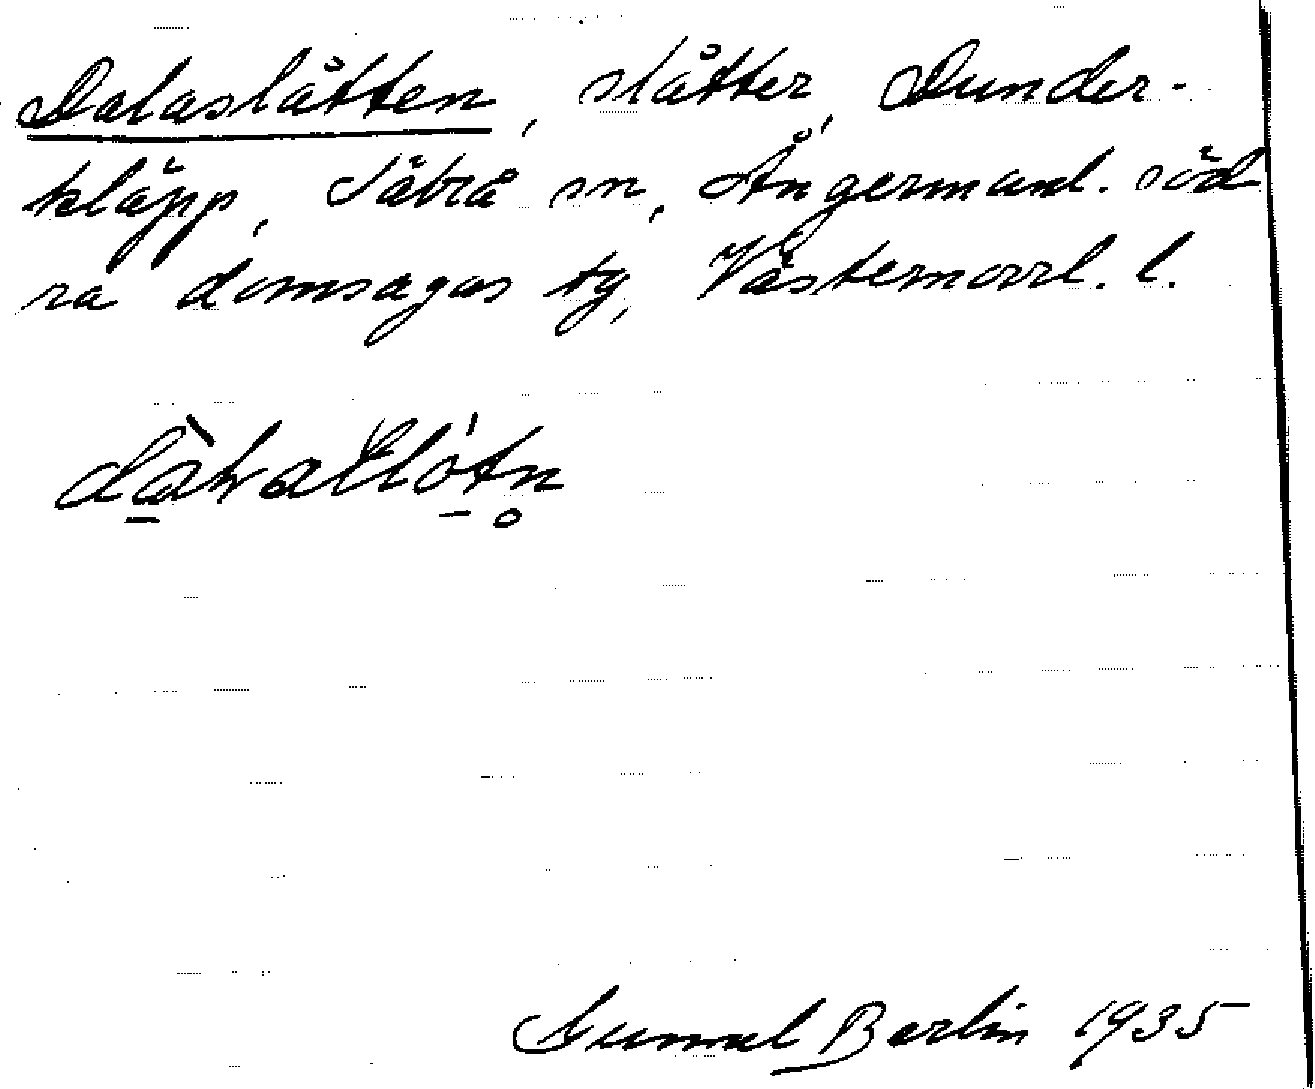 Dalaslåtten, slåtter, Dunder-
kläpp, Säbrå sn, Ångermanl. söd
ra domsagas tg, Västernorrl. l.
Gunnel Berlin 1935